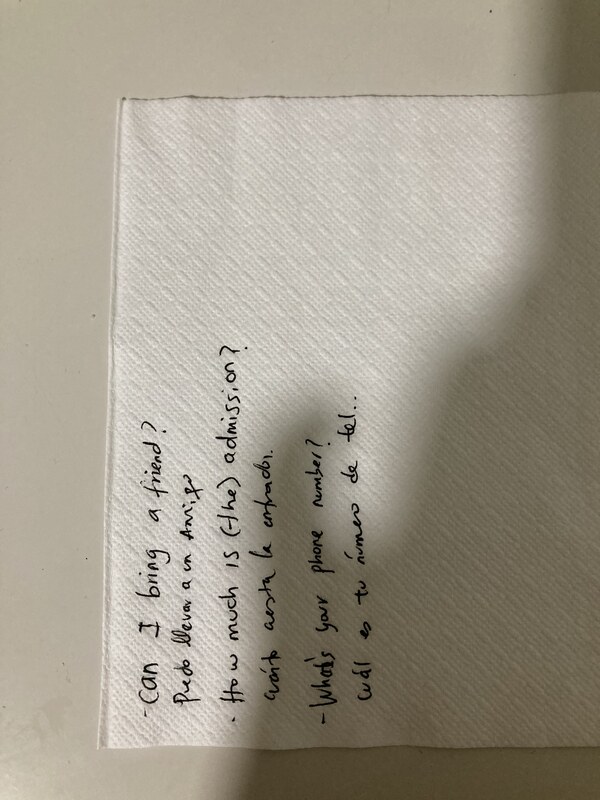 - Can I bring a friend?
Puedo llevar a un Amigo
- How much is (the) admission?
cuánto cuesta la entrada.
- What's your phone number?
cuál es tu número de tel...